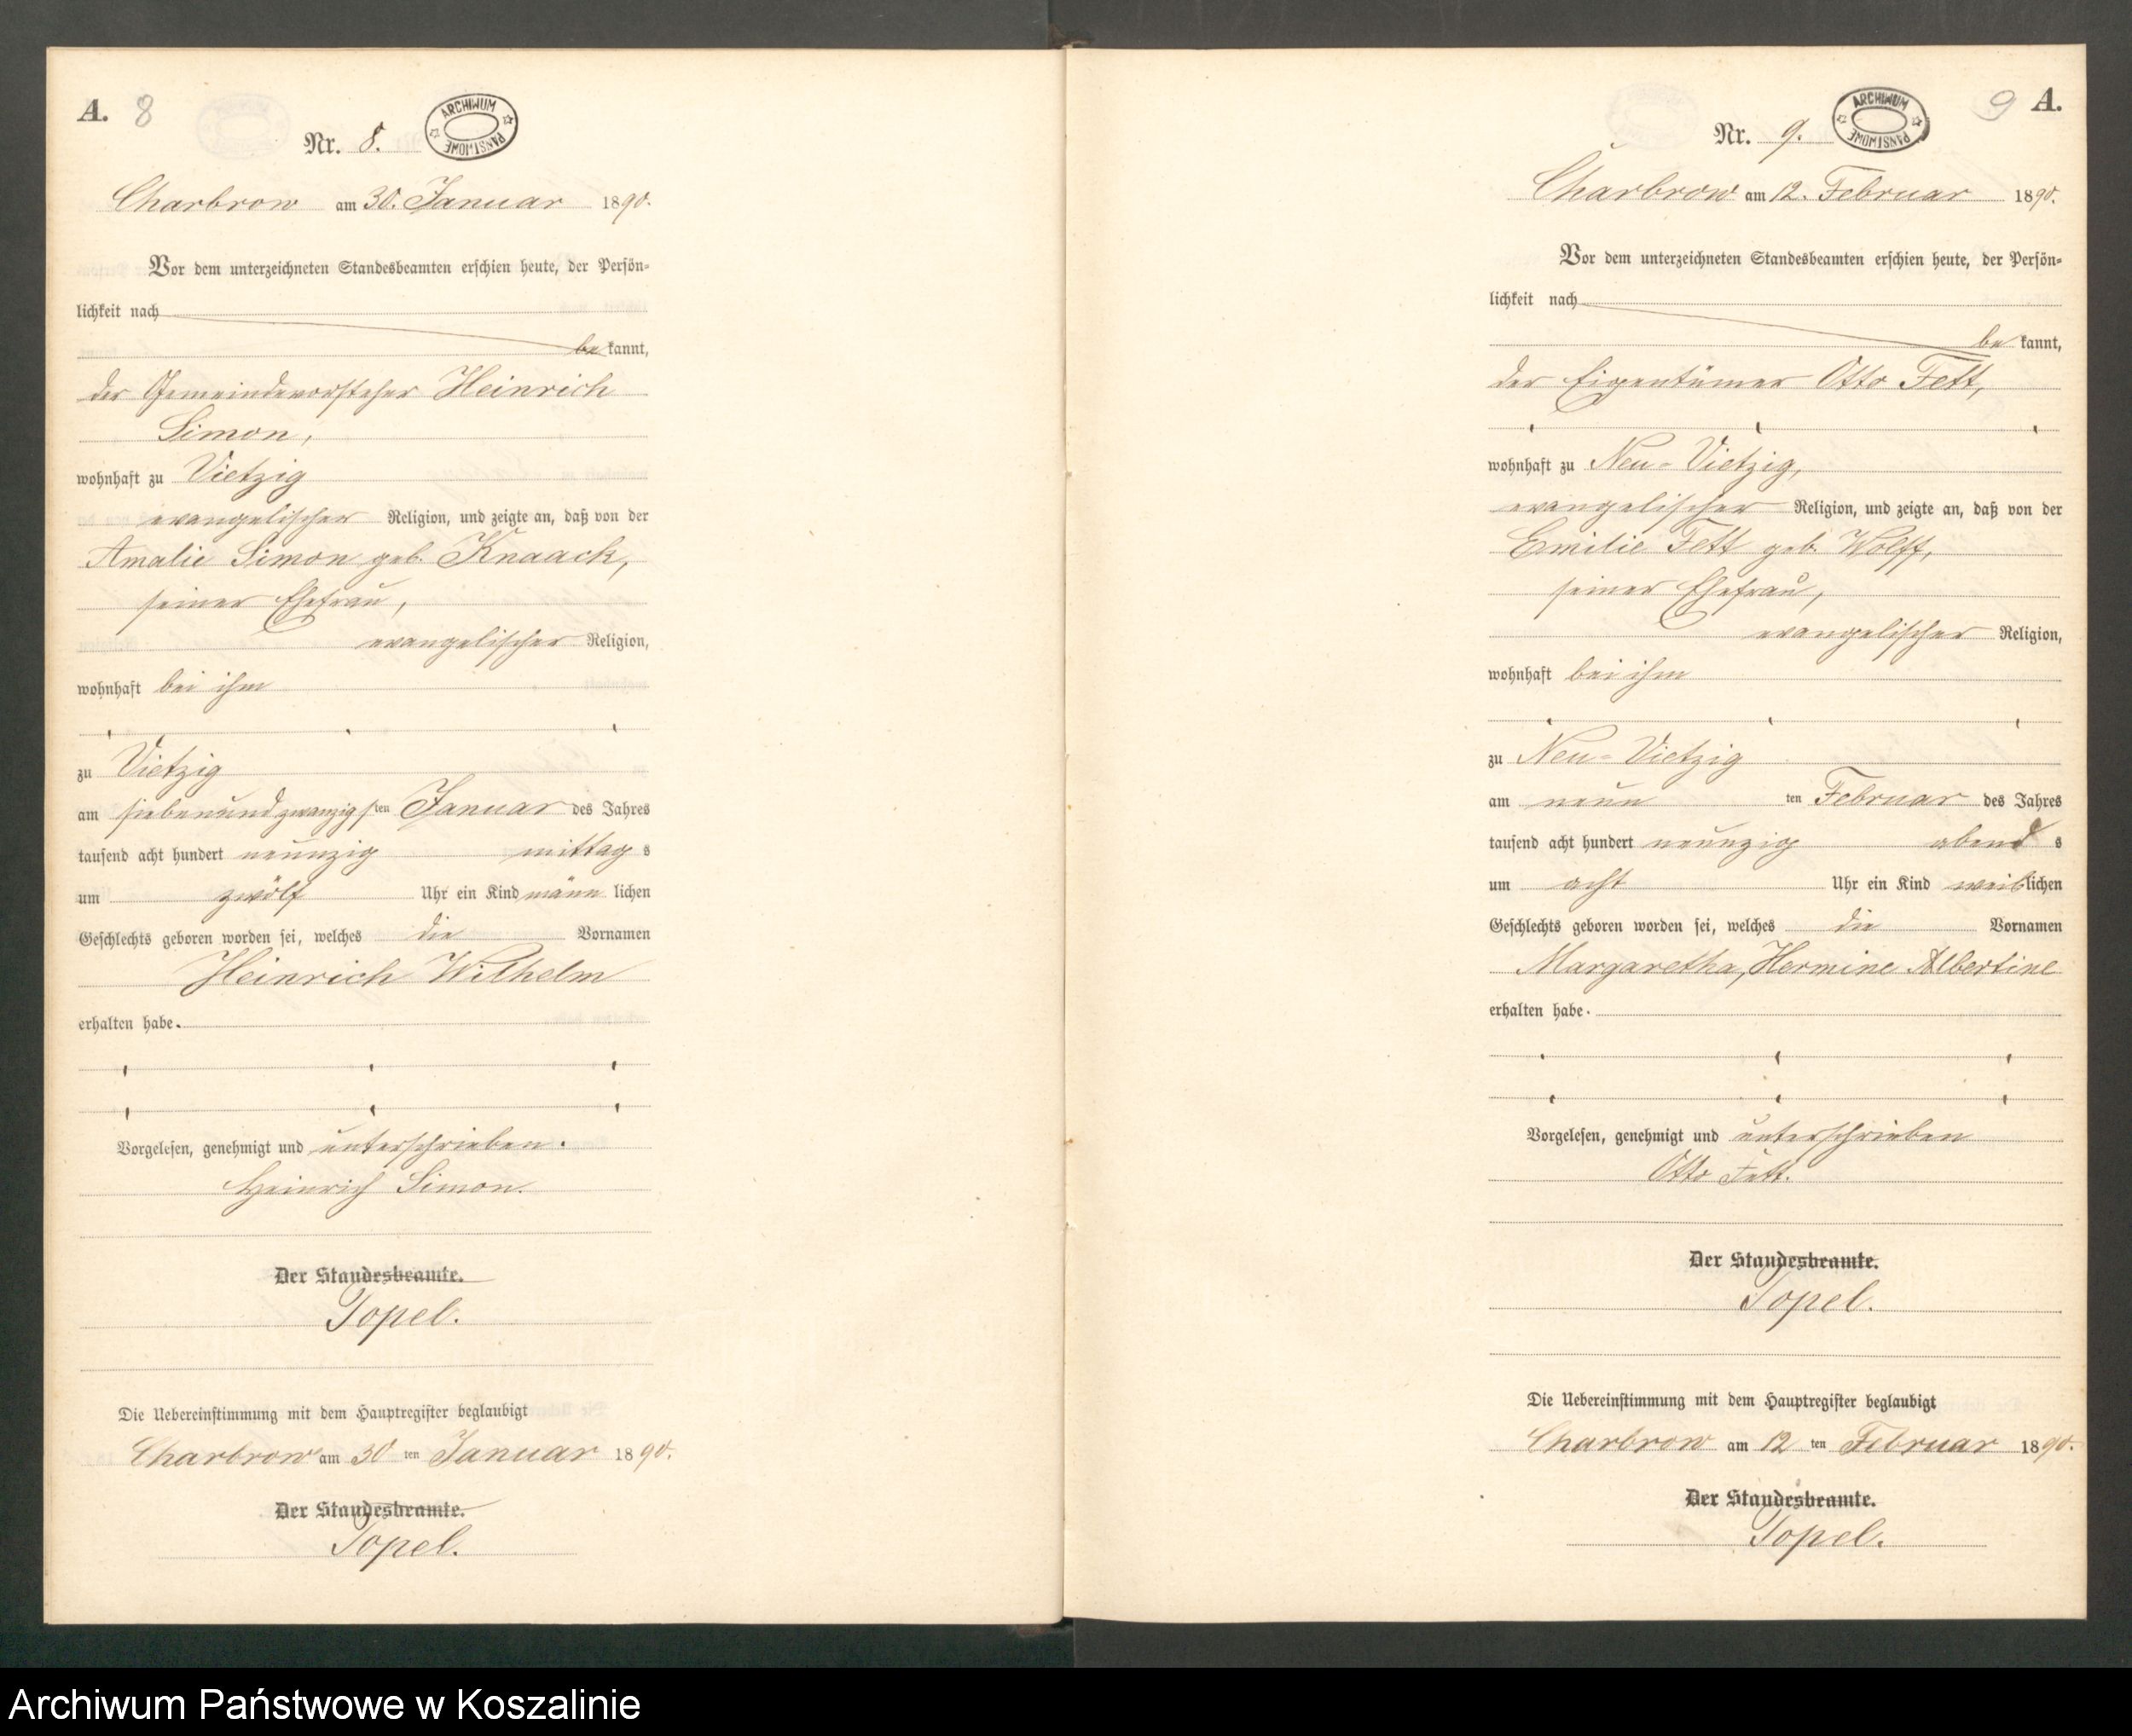 A. 8
ARCHIWUM PAŃSTWOWE
Nr. 8.
Charbrow am 30. Januar 1890.
Vor dem unterzeichneten Standesbeamten erschien heute, der Persön-
lichkeit nach
be kannt,
der Gemeindevorsteher Heinrich
Simon,
wohnhaft zu Vietzig
evangelischer Religion, und zeigte an, daß von der
Amalie Simon geb. Knaack,
seiner Ehefrau,
evangelischer Religion,
wohnhaft bei ihm
zu Vietzig
am siebenundzwanzigsten Januar des Jahres
tausend acht hundert neunzig mittag s
um zwölf Uhr ein Kind männ lichen
Geschlechts geboren worden sei, welches die Vornamen
Heinrich Wilhelm
erhalten habe.
Vorgelesen, genehmigt und unterschrieben.
Heinrich Simon.
Der Standesbeamte.
Topel.
Die Uebereinstimmung mit dem Hauptregister beglaubigt
Charbrow am 30 ten Januar 1890.
Der Standesbeamte.
Topel.
9 A.
ARCHIWUM PAŃSTWOWE
Nr. 9.
Charbrow am 12. Februar 1890.
Vor dem unterzeichneten Standesbeamten erschien heute, der Persön-
lichkeit nach
be kannt,
der Eigentümer Otto Fett,
wohnhaft zu Neu-Vietzig,
evangelischer Religion, und zeigte an, daß von der
Emilie Fett geb. Wolff,
seiner Ehefrau,
evangelischer Religion,
wohnhaft bei ihm
zu Neu-Vietzig
am neun ten Februar des Jahres
tausend acht hundert neunzig abend s
um acht Uhr ein Kind weiblichen
Geschlechts geboren worden sei, welches die Vornamen
Margaretha, Hermine Albertine
erhalten habe.
Vorgelesen, genehmigt und unterschrieben
Otto Fett.
Der Standesbeamte.
Topel.
Die Uebereinstimmung mit dem Hauptregister beglaubigt
Charbrow am 12 ten Februar 1890.
Der Standesbeamte.
Topel.
Archiwum Państwowe w Koszalinie